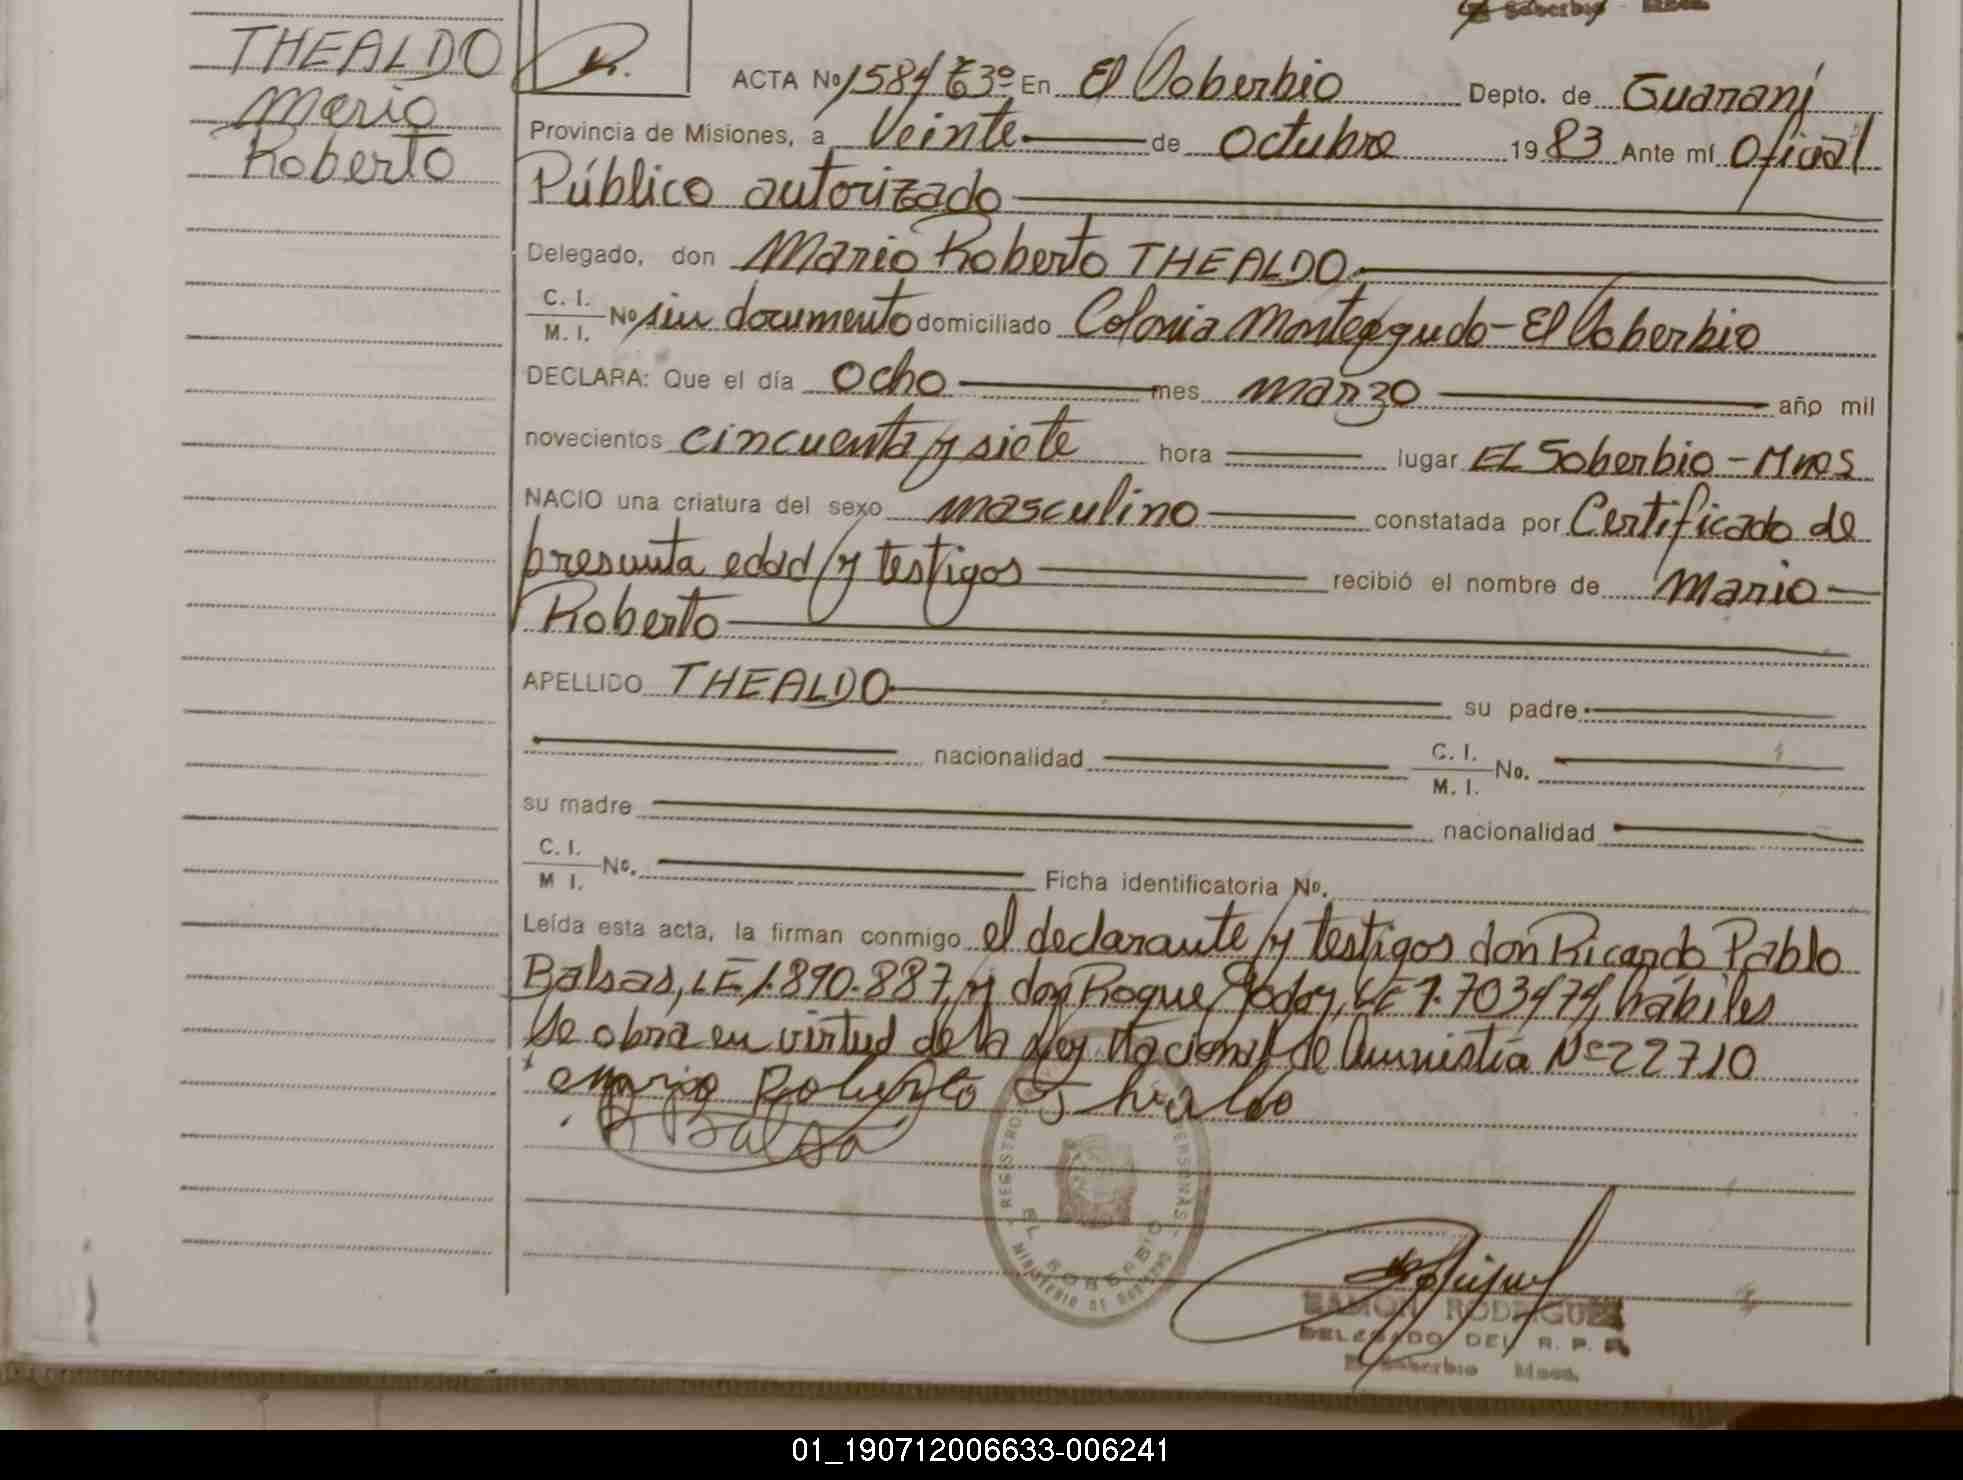 El Soberbio - Mnes.
THEALDO
Mario
Roberto
R.
ACTA Nº 1584 T3º En El Soberbio Depto. de Guaraní
Provincia de Misiones, a Veinte de Octubre 1983 Ante mí Oficial
Público autorizado
Delegado, don Mario Roberto THEALDO
C. I.
M. I. Nº sin documento domiciliado Colonia Monteagudo - El Soberbio
DECLARA: Que el día ocho mes marzo año mil
novecientos cincuenta y siete hora lugar EL Soberbio - Mnes
NACIO una criatura del sexo masculino constatada por Certificado de
presunta edad y testigos recibió el nombre de Mario
Roberto
APELLIDO THEALDO su padre
nacionalidad C. I.
M. I. No.
su madre nacionalidad
C. I.
M I. No. Ficha identificatoria No.
Leída esta acta, la firman conmigo el declarante y testigos don Ricardo Pablo
Balsas, LE 1.890.887, y don Roque Godoy, LE 7.703474, hábiles
Se obra en virtud de la Ley Nacional de Amnistía Nº 22710
Mario Roberto Thealdo
R Balsa
REGISTRO PERSONAS
EL SOBERBIO
MINISTERIO DE GOBIERNO
RAMON RODRIGUEZ
DELEGADO DEL R. P. P.
El Soberbio Mnes.
01_190712006633-006241